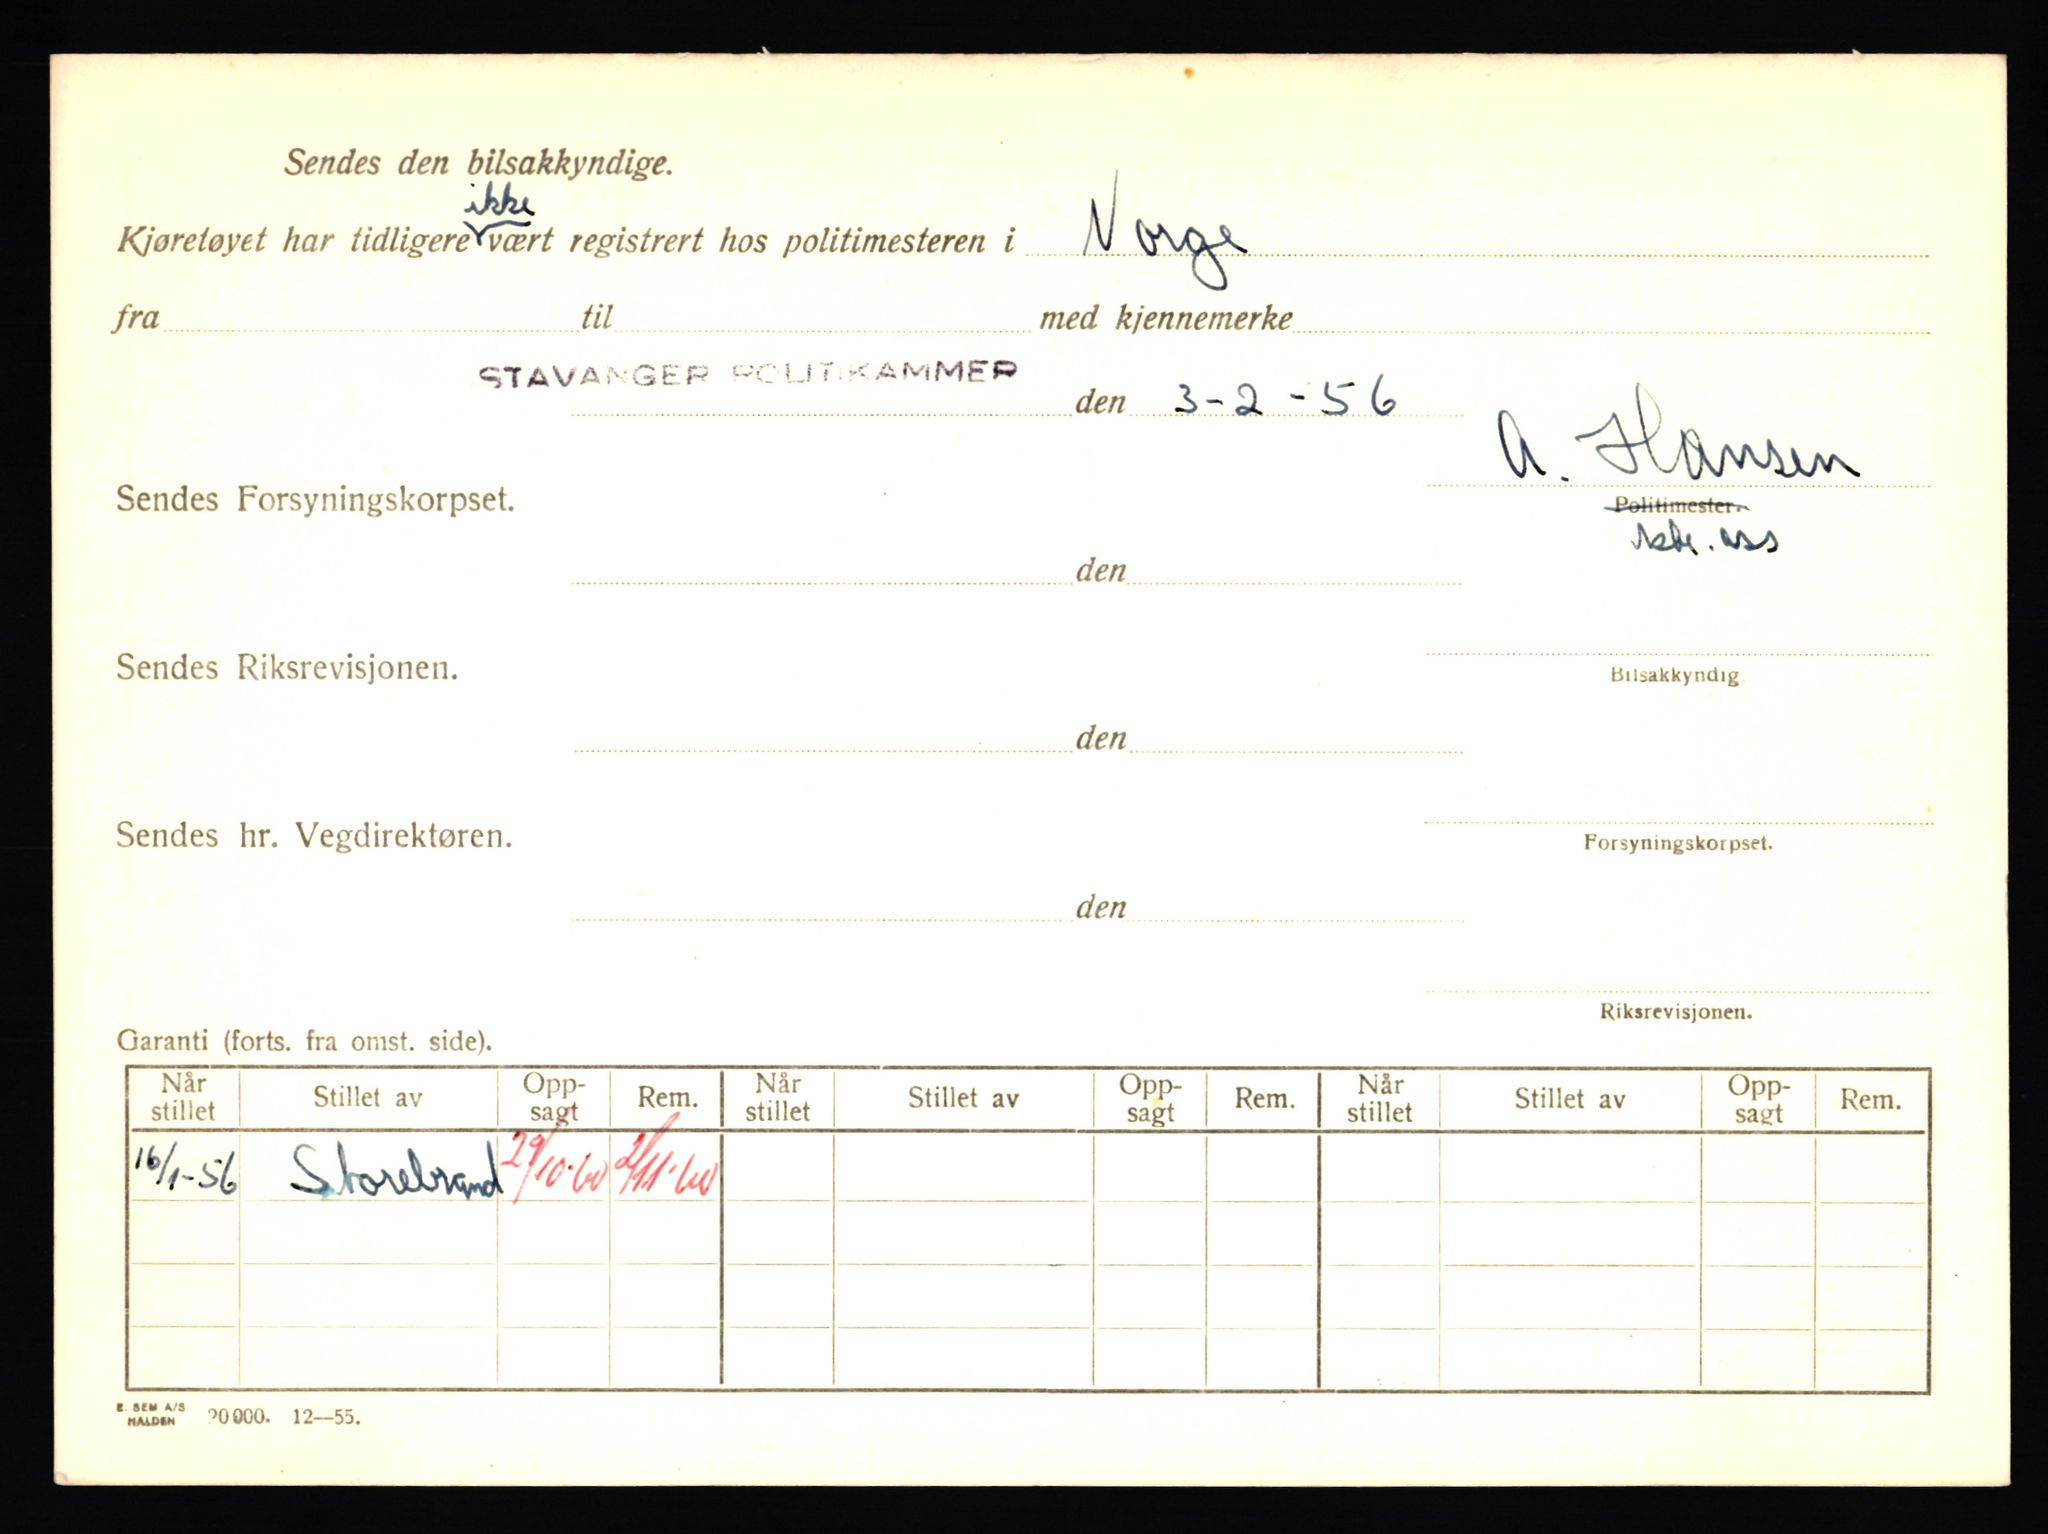 Sendes den bilsakkyndige.
ikke
Kjøretøyet har tidligere vært registrert hos politimesteren i Norge
fra til med kjennemerke
STAVANGER POLITIKAMMER
den 3-2-56
A. Hansen
Sendes Forsyningskorpset.
Politimester.
ktr. ass
den
Sendes Riksrevisjonen.
Bilsakkyndig
den
Sendes hr. Vegdirektøren.
Forsyningskorpset.
den
Riksrevisjonen.
Garanti (forts. fra omst. side).
Når stillet Stillet av Opp-sagt Rem. Når stillet Stillet av Opp-sagt Rem. Når stillet Stillet av Opp-sagt Rem.
16/1-56 Storebrand 29/10-60 2/11-60
E. SEM A/S
HALDEN 20000. 12—55.